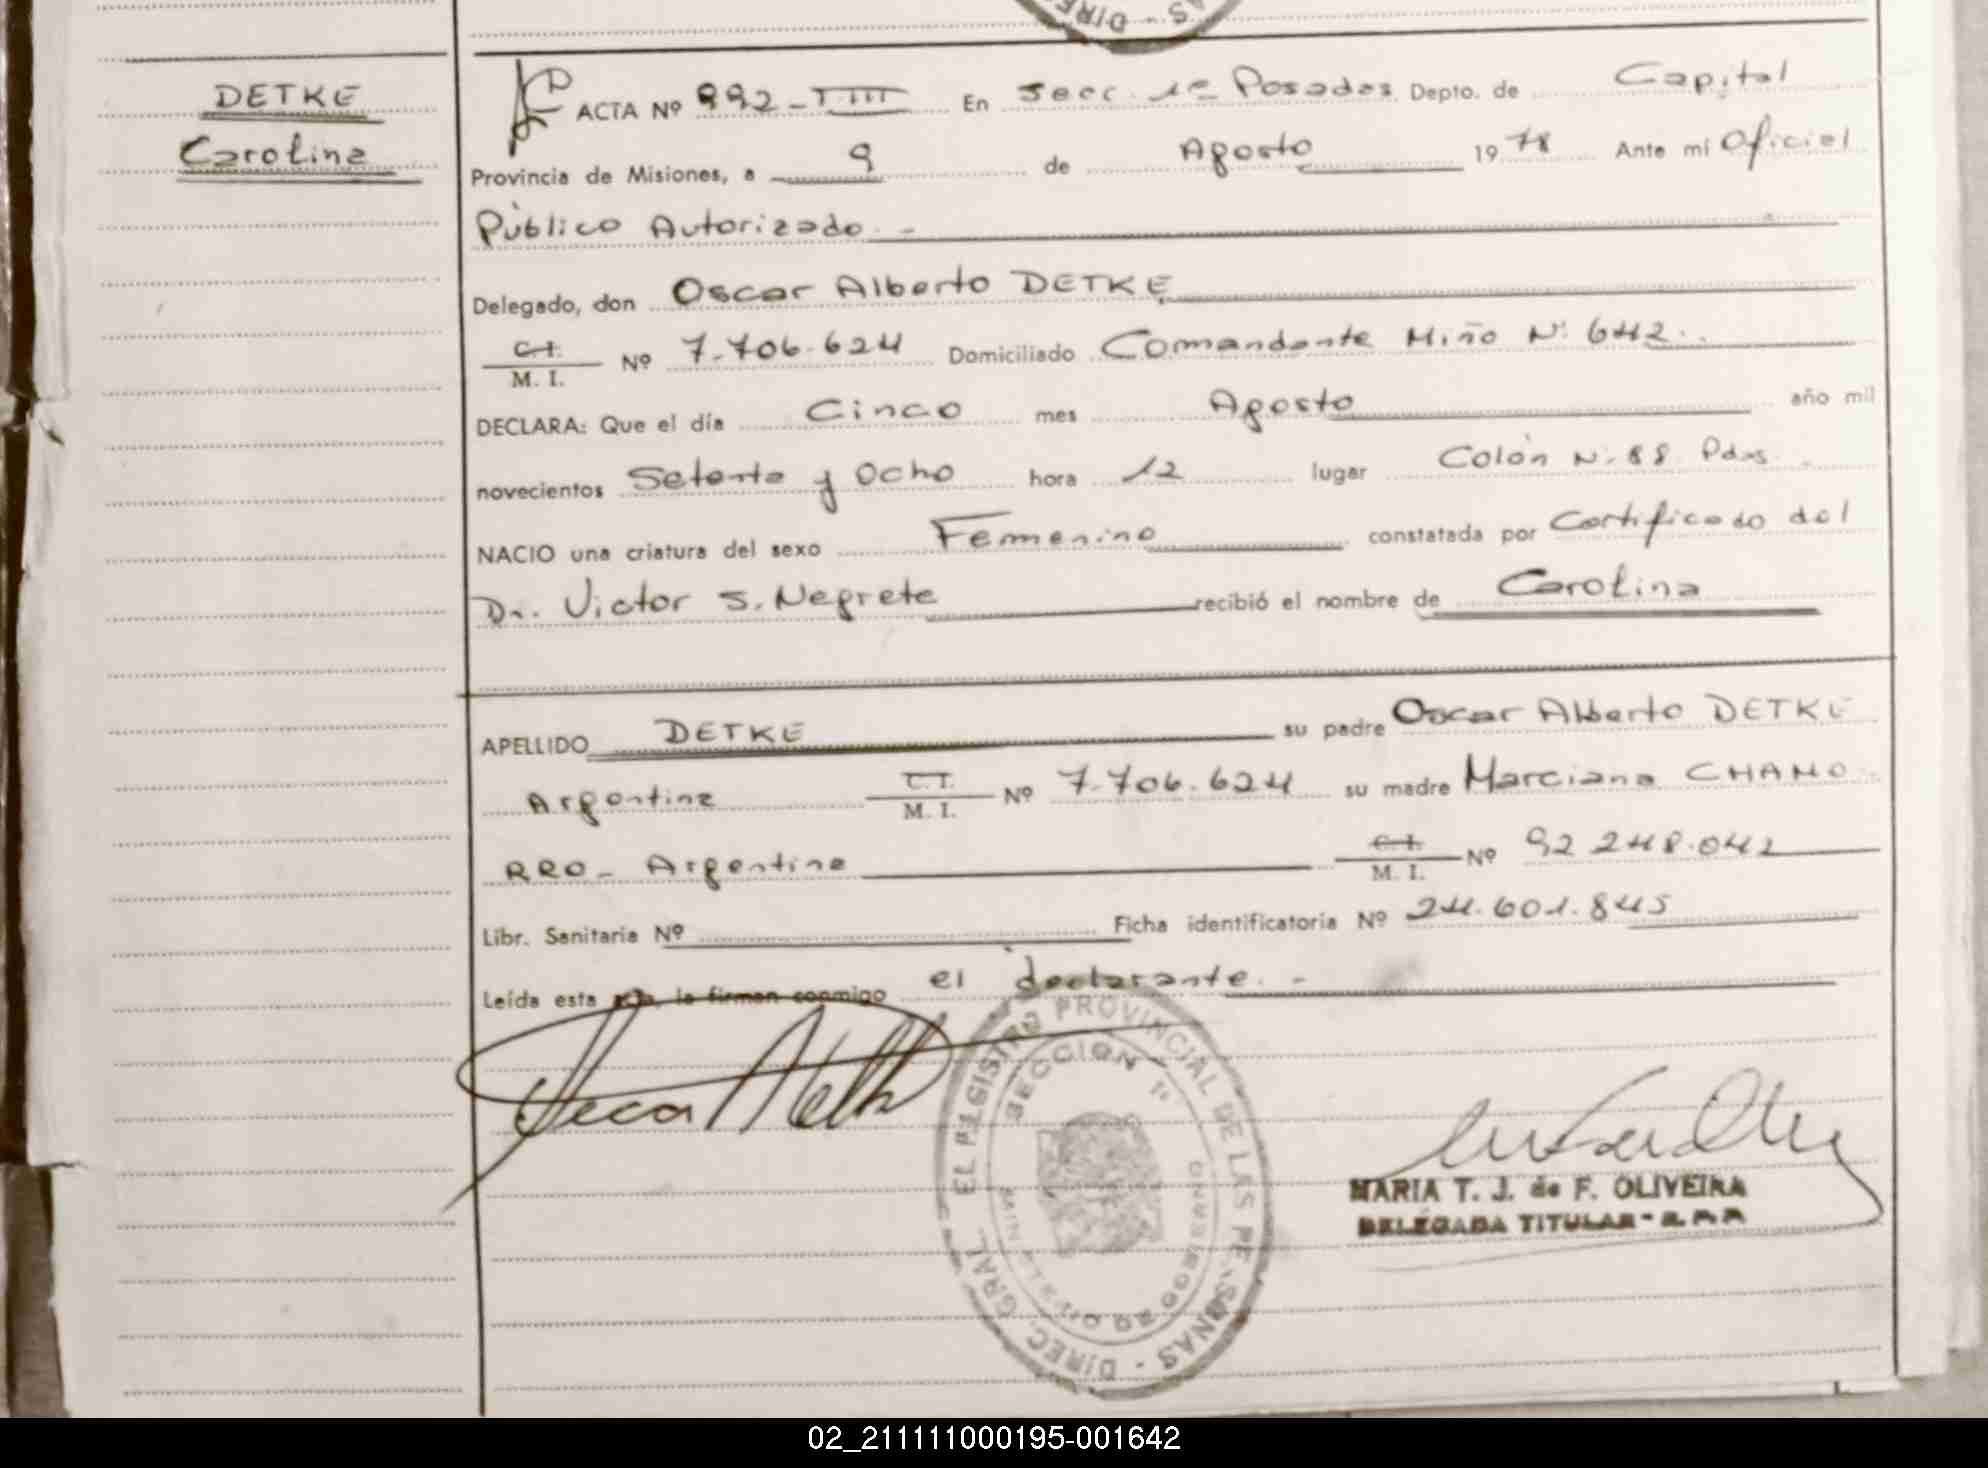 DIRE - S AS
DETKE
Carolina
ACTA Nº 992 - T III En Secc. 1ª Posadas Depto. de Capital
Provincia de Misiones, a 9 de Agosto 1978 Ante mi Oficiel
Público Autorizado. -
Delegado, don Oscar Alberto DETKE
C.I. M. I. Nº 7.706.624 Domiciliado Comandante Miño Nº 642.
DECLARA: Que el día Cinco mes Agosto año mil
novecientos Setenta y Ocho hora 12 lugar Colón N. 88 Pdas.
NACIO una criatura del sexo Femenino constatada por Certificado del
Dr. Victor S. Negrete recibió el nombre de Carolina
APELLIDO DETKE su padre Oscar Alberto DETKE
Argentina C.I. M. I. Nº 7.706.624 su madre Marciana CHAMO
RRO - Argentina C.I. M. I. Nº 92 248.042
Libr. Sanitaria Nº Ficha identificatoria Nº 24.601.845
Leída esta la firman conmigo el declarante. -
DIREC. GRAL. EL REGISTRO PROVINCIAL DE LAS PERSONAS -
SECCION 1ª
MARIA T. J. de F. OLIVEIRA
DELEGADA TITULAR - R.P.P.
02_211111000195-001642